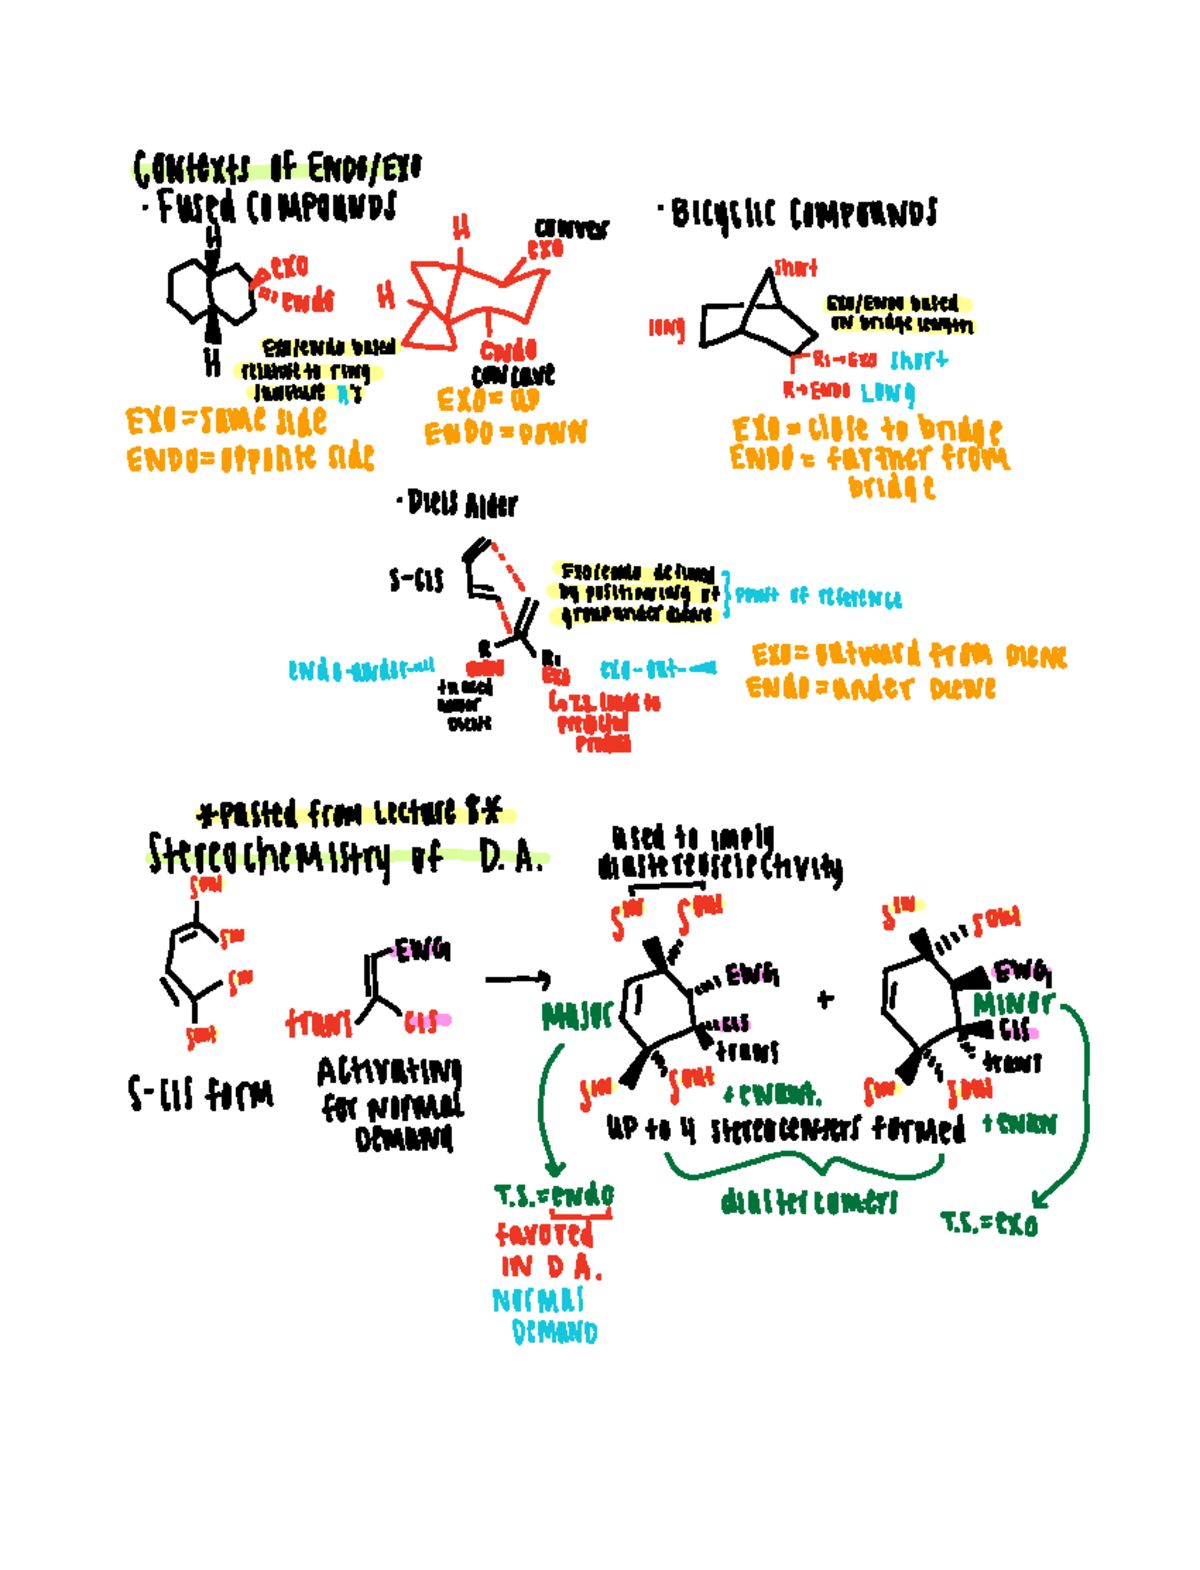 Contexts of Endo/Exo
· Fused Compounds
H
exo
endo
H
Exo/endo based
relative to ring
H
convex
exo
H
endo
concave
Exo = same side
Endo = opposite side
Exo = up
Endo = down
· Bicyclic Compounds
short
long
Exo/Endo based
on bridge length
R₁→exo short
R→Endo long
Exo = close to bridge
Endo = farther from
bridge
· Diels Alder
S-cis
Exo/endo defined
by positioning of
group under diene
point of reference
R
endo
R₁
exo
tucked
under
diene
T.S. leads to
predicted
product
Exo = outward from diene
Endo = under diene
*Pasted from Lecture 8*
Stereochemistry of D.A.
Sout
Sin
Sin
Sout
S-cis form
EWG
trans
cis
Activating
for normal
demand
used to imply
diastereoselectivity
Sin
Sout
EWG
cis
trans
Sin
Sout
Major
+ enant.
+
Sin
Sout
EWG
Minor
cis
trans
Sin
Sout
+ enan
up to 4 stereocenters formed
diastereomers
T.S.=endo
favored
in D A.
normal
demand
T.S.=exo